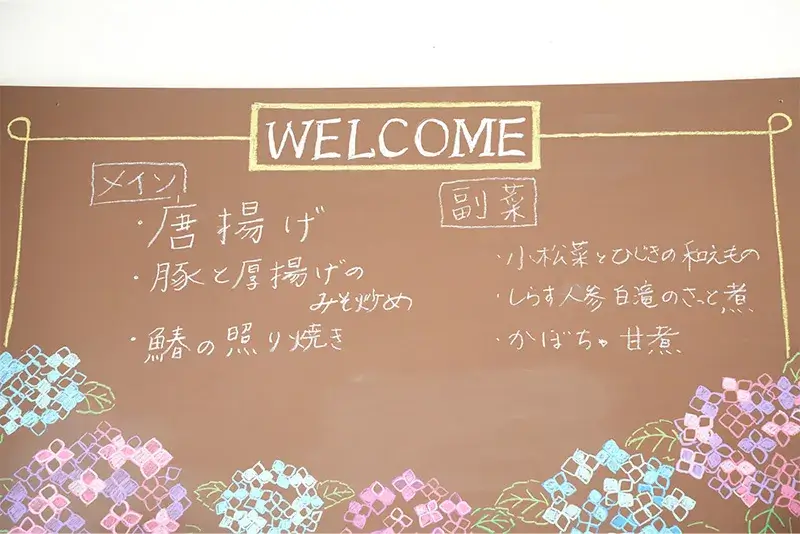 WELCOME
メイン
・唐揚げ
・豚と厚揚げの
みそ炒め
・鰆の照り焼き
副菜
・小松菜とひじきの和えもの
・しらす人参白滝のさっと煮
・かぼちゃ甘煮